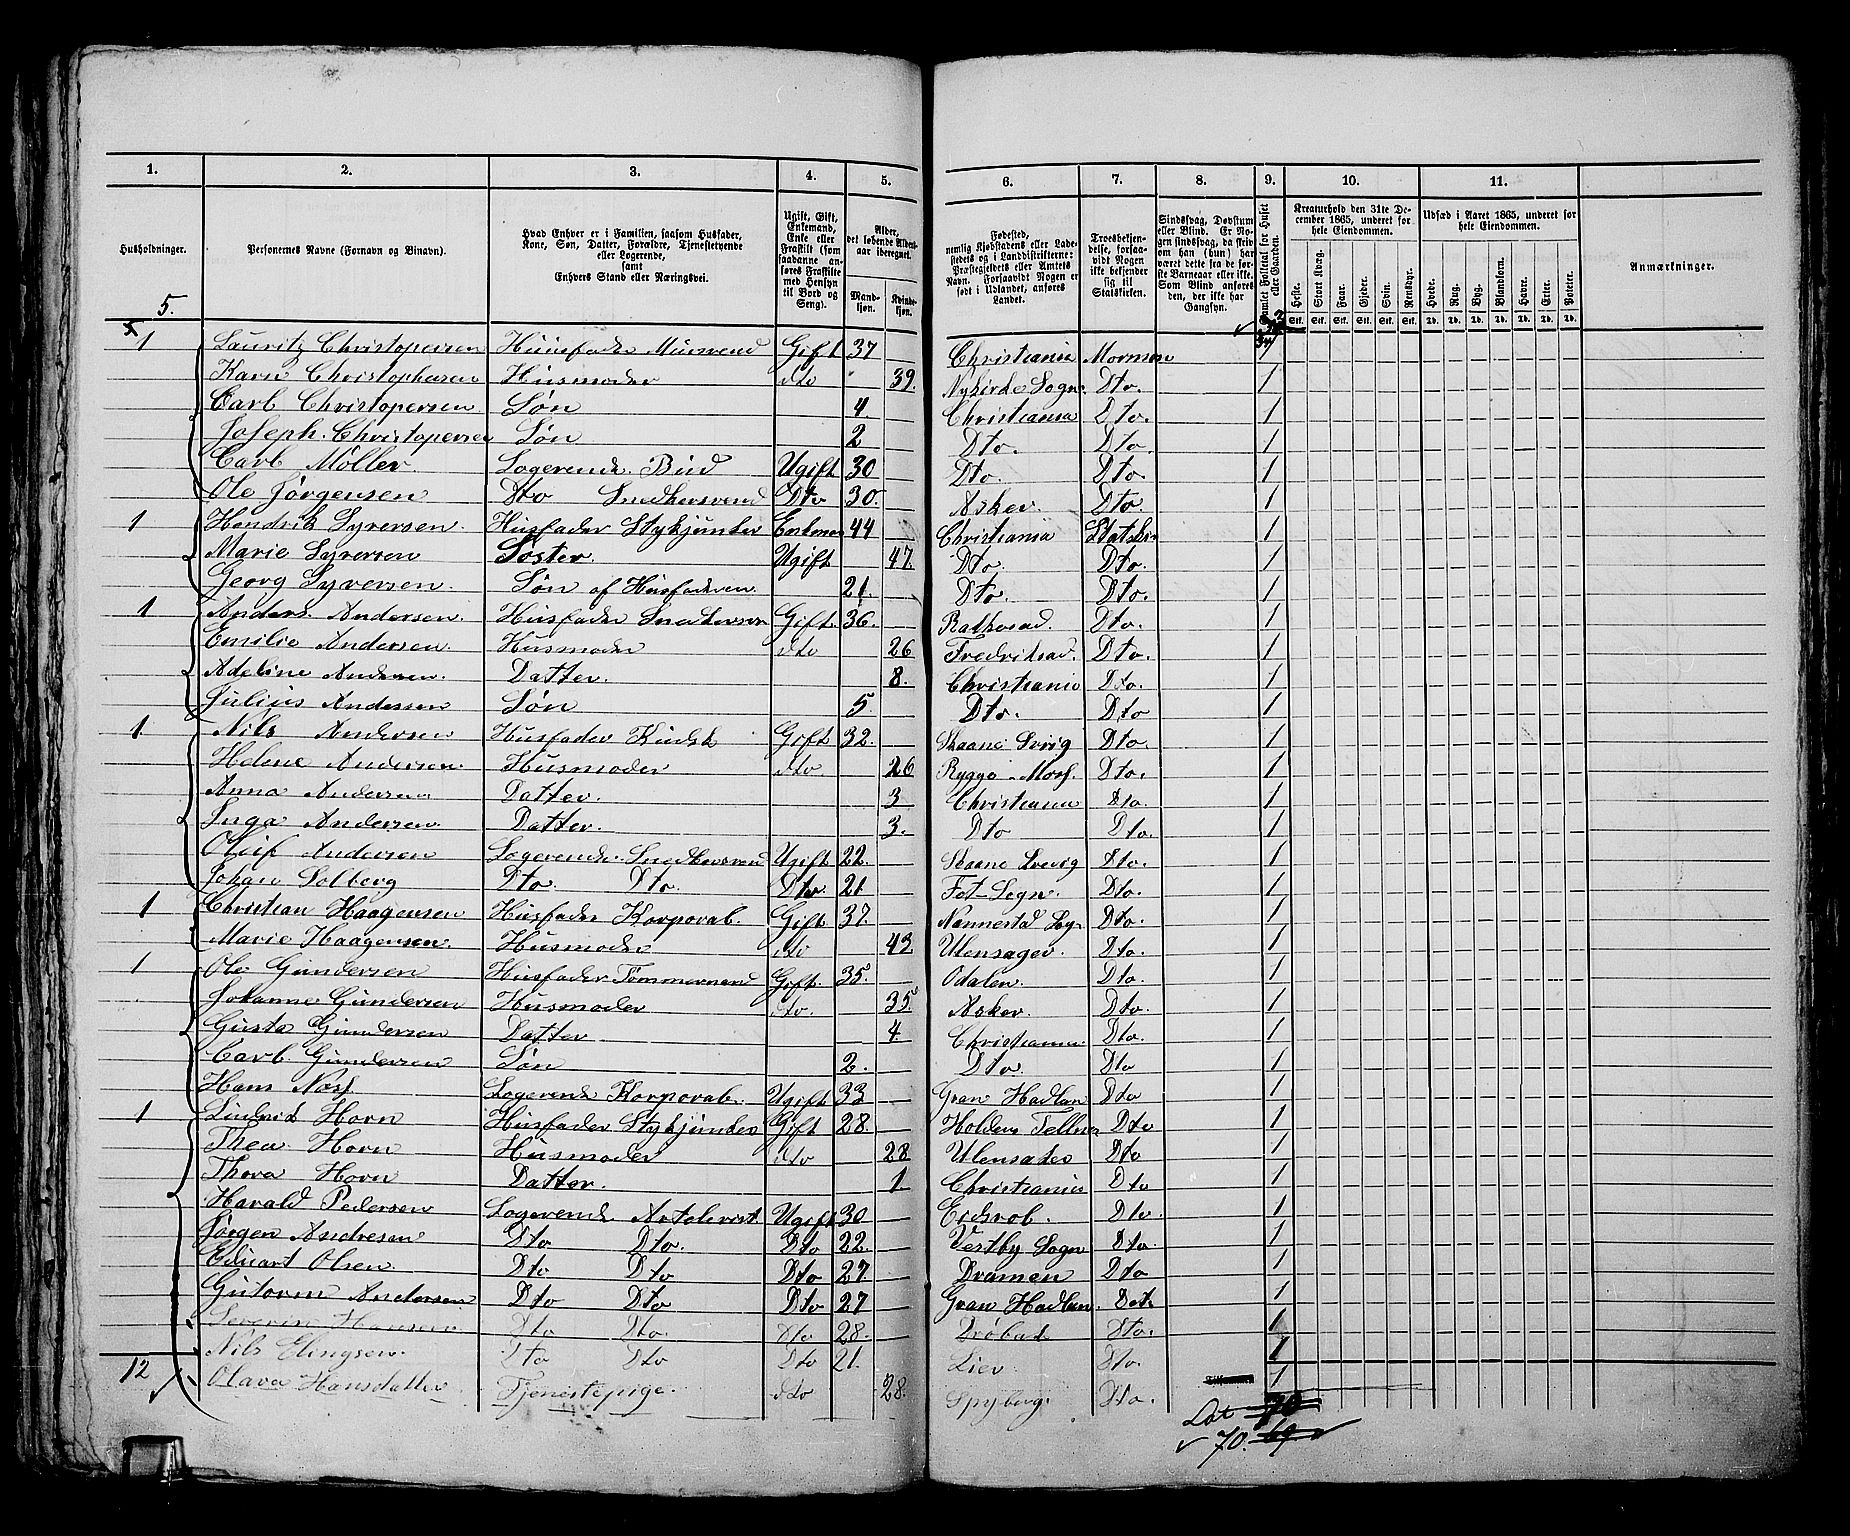 1. 2. 3. 4. 5. 6. 7. 8. 9. 10. 11.
Husholdninger.
Personernes Navne (Fornavn og Binavn).
Hvad Enhver er i Familien, saasom Husfader, Kone, Søn, Datter, Forældre, Tjenestetyende eller Logerende, samt Enhvers Stand eller Næringsvei.
Ugift, Gift, Enkemand, Enke eller Fraskilt (som saadanne anføres Fraskilte med Hensyn til Bord og Seng).
Alder, det løbende Aldersaar iberegnet.
Mandkjøn. Kvindekjøn.
Fødested, nemlig Kjøbstadens eller Ladestedets og i Landdistrikterne: Præstegjeldets eller Amtets Navn. Forsaavidt Nogen er født i Udlandet, anføres Landet.
Troesbekjendelse, forsaavidt Nogen ikke bekjender sig til Statskirken.
Sindssvag, Døvstum eller Blind. Er Nogen sindssvag, da skrives om han (hun) har været dette fra de første Barneaar eller ikke. Som Blind anføres den, der ikke har Gangsyn.
Samlet Folketal for Huset eller Gaarden.
Kreaturhold den 31te December 1865, underet for hele Eiendommen.
Heste. Stort Kvæg. Faar. Gjeder. Svin. Rensdyr.
Stk. Stk. Stk. Stk. Stk. Stk.
Udsæd i Aaret 1865, underet for hele Eiendommen.
Hvede. Rug. Byg. Blandkorn. Havre. Erter. Poteter.
Td. Td. Td. Td. Td. Td. Td.
Anmærkninger.
5.
1 Lauritz Christopersen Husfader Murisvend Gift 37 Christiania Mormon
Karn Christophersen Husmoder dto 39. Sogn. Dto. 1
Carl Christopersen. Søn 4 Christiania Dto. 1
Joseph. Christopersen Søn 2 Dto. Dto. 1
Carl Møller Logerende. Bud Ugift 30 Dto. Dto. 1
Ole Jørgensen Dto Snedkersvend Dto 30. Asker. Dto 1
1 Hendrik Syversen. Husfader Stykjunker 44 Christiania 1
Marie Syversen Søster. Ugift 47. Dto. Dto. 1
Georg Syversen. Søn af Husfaderen. 21. Dto. Dto. 1
1 Anders. Andersen. Husfader Gift. 36. Dto. 1
Emilie Andersen. Husmoder dto 26 Dto. 1
Adeline Andersen. Datter. 8. Christiania Dto. 1
Julius Andersen Søn 5. Dto. Dto 1
1 Nils Andersen Husfader Kudsk Gift 32. Skaane Dto. 1
Helene Andersen. Husmoder dto 26 Rygge Dto. 1
Anna Andersen Datter. 3 Christiania Dto. 1
Inga Andersen. Datter. 3. Dto Dto. 1
Andersen Logerende. Snedkersvend Ugift 22. Skaane Dto. 1
Johan Solberg Dto. Dto. Dto. 21 Dto. 1
1 Christian Haagensen Husfader Korporal. Gift. 37. Nannestad Dto. 1
Marie Haagensen. Husmoder dto 43 Ulensager. Dto. 1
1 Ole Gundersen Husfader Tømmermand Gift. 35. Odalen. Dto. 1
Johanne Gundersen Husmoder dto. 35. Asker. Dto. 1
Gusta Gundersen Datter 4. Christiania. Dto. 1
Carl Gundersen Søn 2. Dto. Dto 1
Hans Logerende Korporal. Ugift 33 Gran Dto 1
1 Horn Husfader Stykjunker Gift 28. Dto 1
Thea Horn Husmoder dto 28 Dto 1
Thora Horn Datter. 1 Christiania Dto 1
Harald Pedersen Logerende Ugift 30 Dto. 1
Jørgen Andresen Dto Dto. Dto 22. Vestby Sogn Dto. 1
Eduart Olsen. Dto Dto Dto 27. Dramen Dto 1
Gutorm Andersen Dto Dto Dto 27 Gran 1
Severin Hansen Dto Dto. Dto 28. Drøbak Dto. 1
Nils Dto Dto Dto 21. Lier. Dto. 1
12 Olava Hansdatter Tjenestepige. dto 28. Spyberg. Dto. 1
Lat. 70
70. 69.